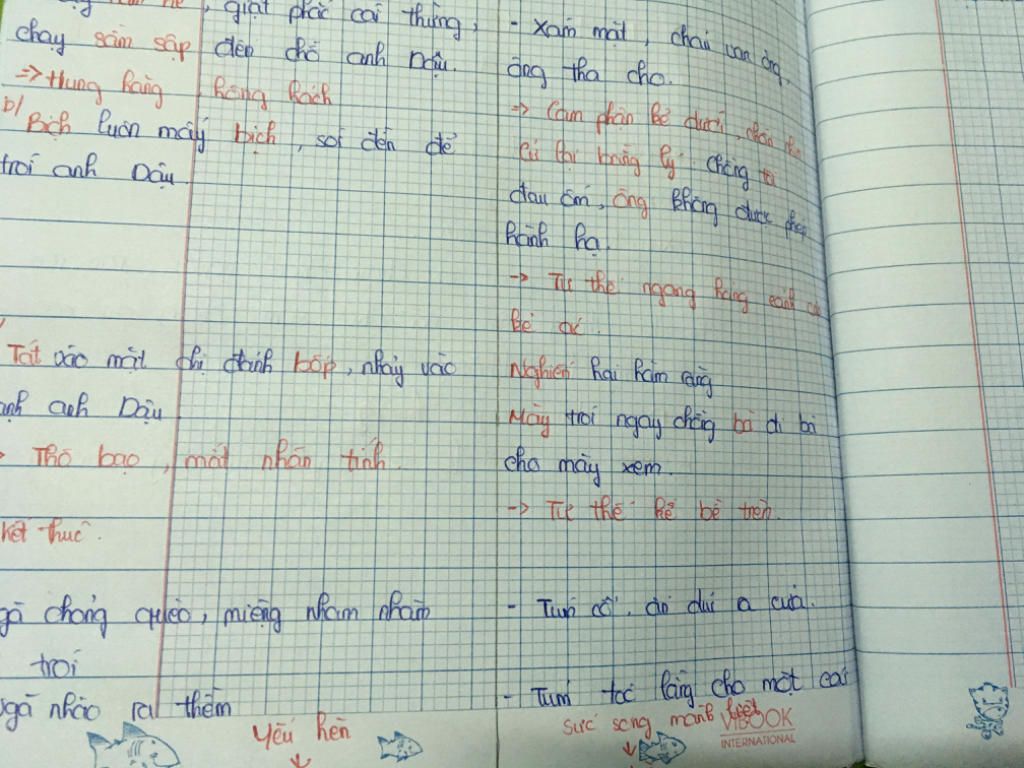 , giật phắc cái thừng,
chạy sầm sập đến chỗ anh Dậu.
=> Hung hăng hống hách
b/ Bịch luôn mấy bịch, sòi đến để
trói anh Dậu
Tát vào mặt chị đánh bốp, nhảy vào
anh Dậu
Thô bạo, mất nhân tính.
kết thúc.
chỏng quèo, miệng nham nhảm
trói
ngã nhào ra thềm
Yếu hèn
- Xám mặt, cháu van ông,
ông tha cho.
-> Cam phận kẻ dưới,
chồng tôi
đau ốm, ông không được phép
hành hạ.
-> Tư thế ngang hàng
kẻ ác.
Nghiến hai hàm răng
Mày trói ngay chồng bà đi bà
cho mày xem.
-> Tư thế kẻ bề trên.
- Túm cổ, ấn dúi a cửa.
- Túm tóc lẳng cho một cái
sức sống mãnh liệt
VIBOOK
INTERNATIONAL